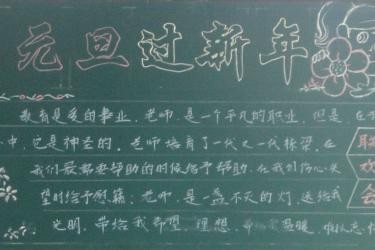 元旦过新年
教育是爱的事业，老师，是一个平凡的职业，但是，在
心中，它是神圣的。老师培育了一代又一代栋梁。在
我们最需要帮助的时候给予帮助，在我们伤心失
望时给予慰籍。老师，是一盏不灭的灯，送给我
光明，带给我希望、理想，带给我温暖，
联
欢
会